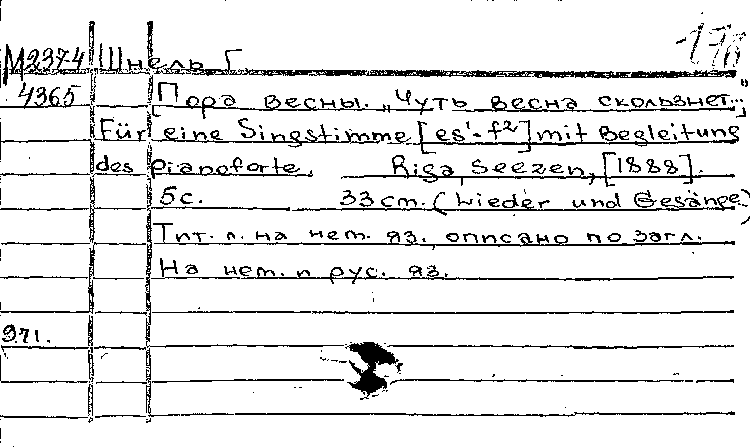 М2374 Шнель Г.
4365 [Пора весны. „Чуть весна скользнет..."
Für eine Singstimme [es¹-f²] mit Begleitung
des Pianoforte. Riga, Seezen, [1888].
5с. 33 cm. (Lieder und Gesänge)
Тит. л. на нем. яз., описано по загл.
На нем. и рус. яз.
971.